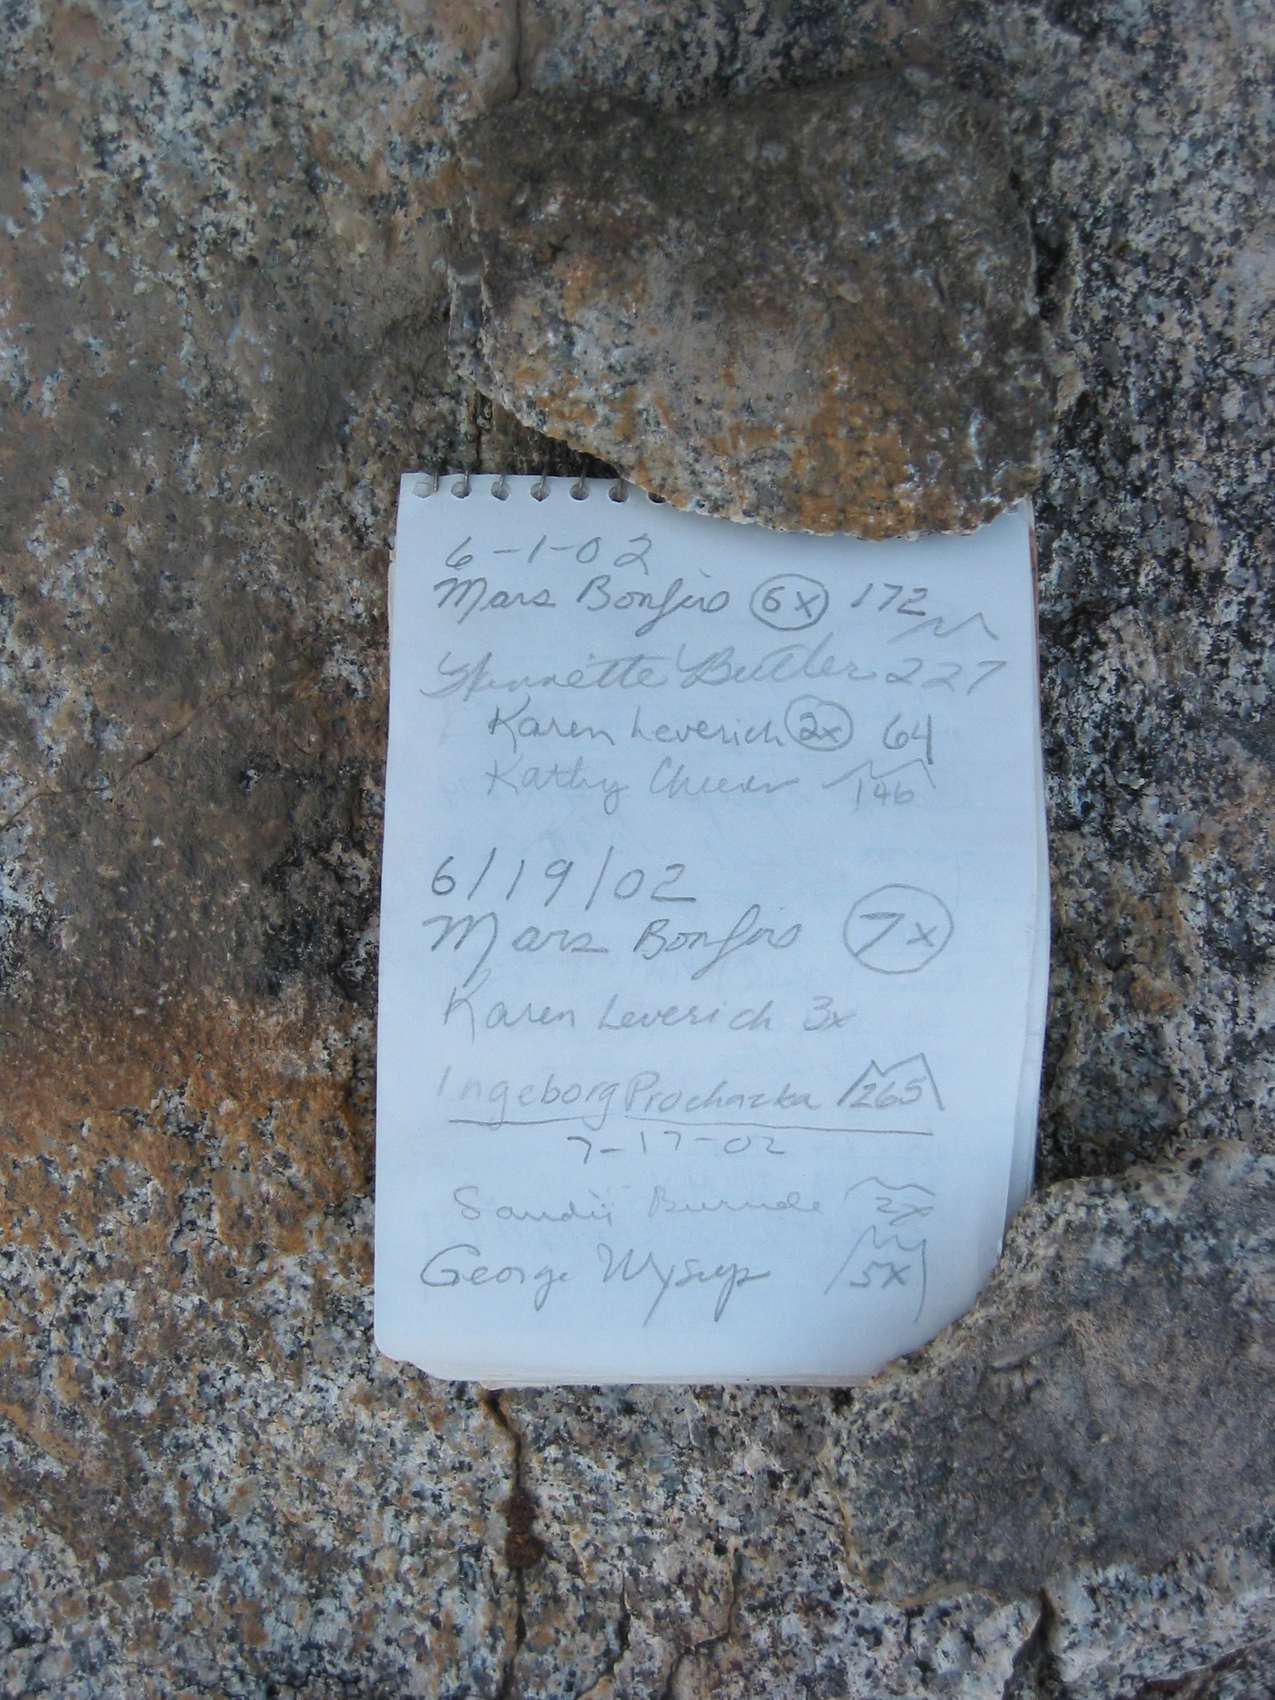 6-1-02
Mars Bonfiro 6x 172
Butler 227
Karen Leverich 2x 64
Kathy Cheever 146
6/19/02
Mars Bonfiro 7x
Karen Leverich 3x
Ingeborg Prochazka 265
7-17-02
2x
George Wysup 5x